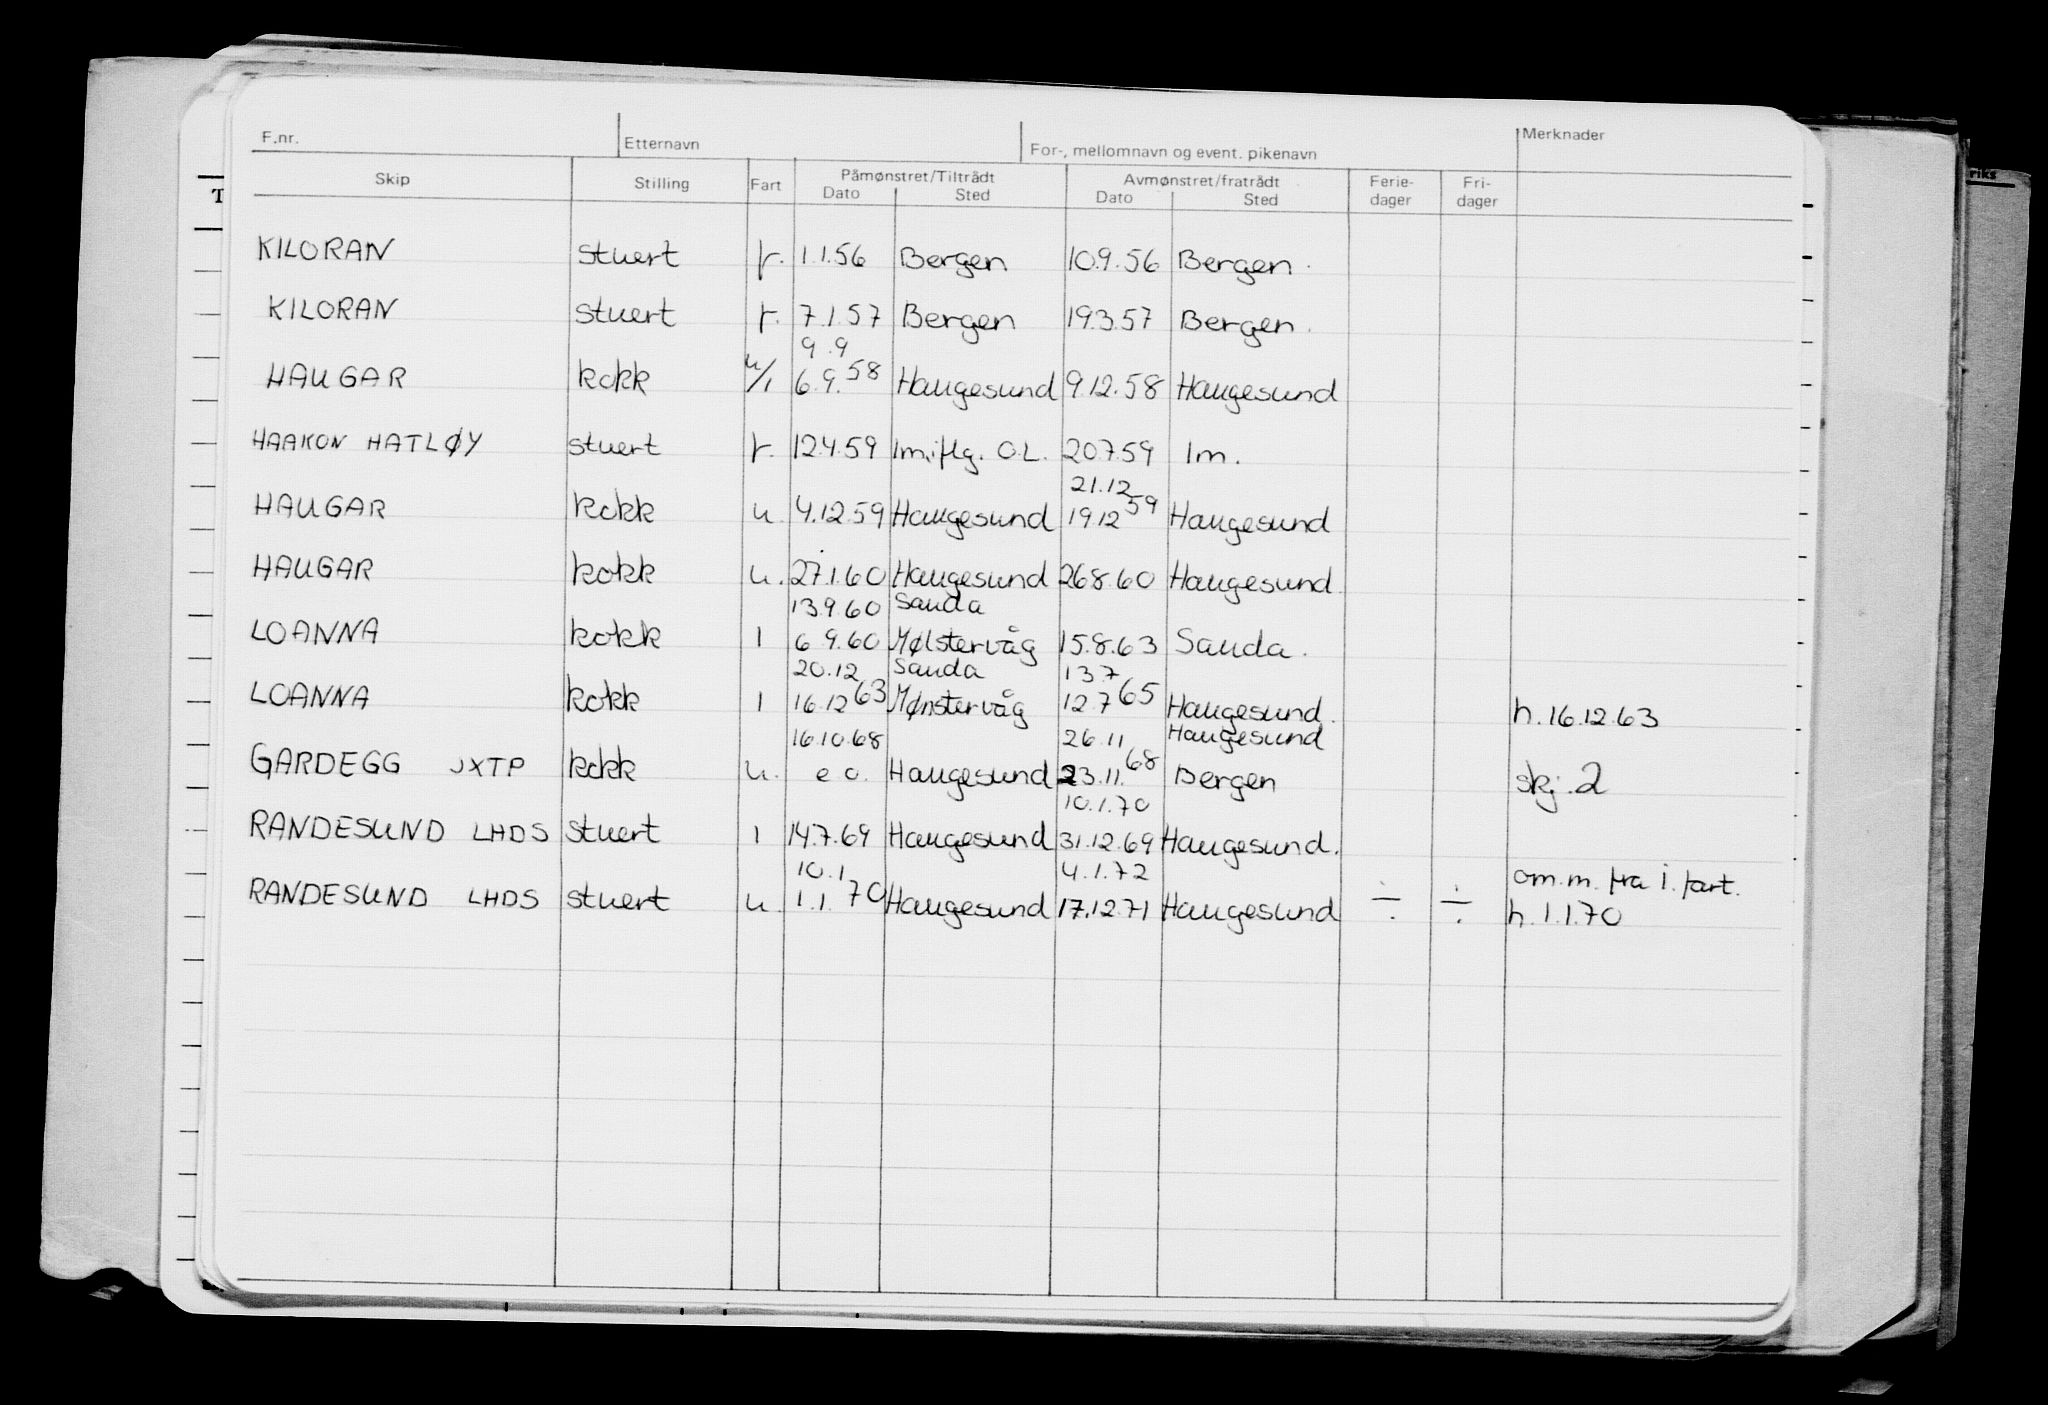 F.nr. Etternavn For-, mellomnavn og event. pikenavn Merknader
Skip Stilling Fart Påmønstret/Tiltrådt Avmønstret/fratrådt Ferie- Fri-
Dato Sted Dato Sted dager dager
T
riks
KILORAN stuert f. 1.1.56 Bergen 10.9.56 Bergen.
KILORAN stuert f. 7.1.57 Bergen 19.3.57 Bergen.
9.9
HAUGAR kokk u/i 6.9.58 Haugesund 9.12.58 Haugesund
HAAKON HATLØY stuert f. 12.4.59 Im.iflg. O.L. 20.7.59 Im.
21.12
HAUGAR kokk u 4.12.59 Haugesund 19.12 59 Haugesund
HAUGAR kokk u. 27.1.60 Haugesund 26.8.60 Haugesund.
13.9.60 Sauda
LOANNA kokk I 6.9.60 Mølstervåg 15.8.63 Sauda.
20.12 Sauda 13.7
LOANNA kokk I 16.12 63 Mønstervåg 12.7 65 Haugesund. h.16.12.63
16.10.68 26.11 Haugesund
GARDEGG JXTP kokk u. e o. Haugesund 23.11.68 Bergen skj.2
10.1.70
RANDESUND LHDS stuert I 14.7.69 Haugesund 31.12.69 Haugesund.
10.1 4.1.72 om.m. fra i. fart.
RANDESUND LHDS stuert u. 1.1.70 Haugesund 17.12.71 Haugesund ÷ ÷ h.1.1.70